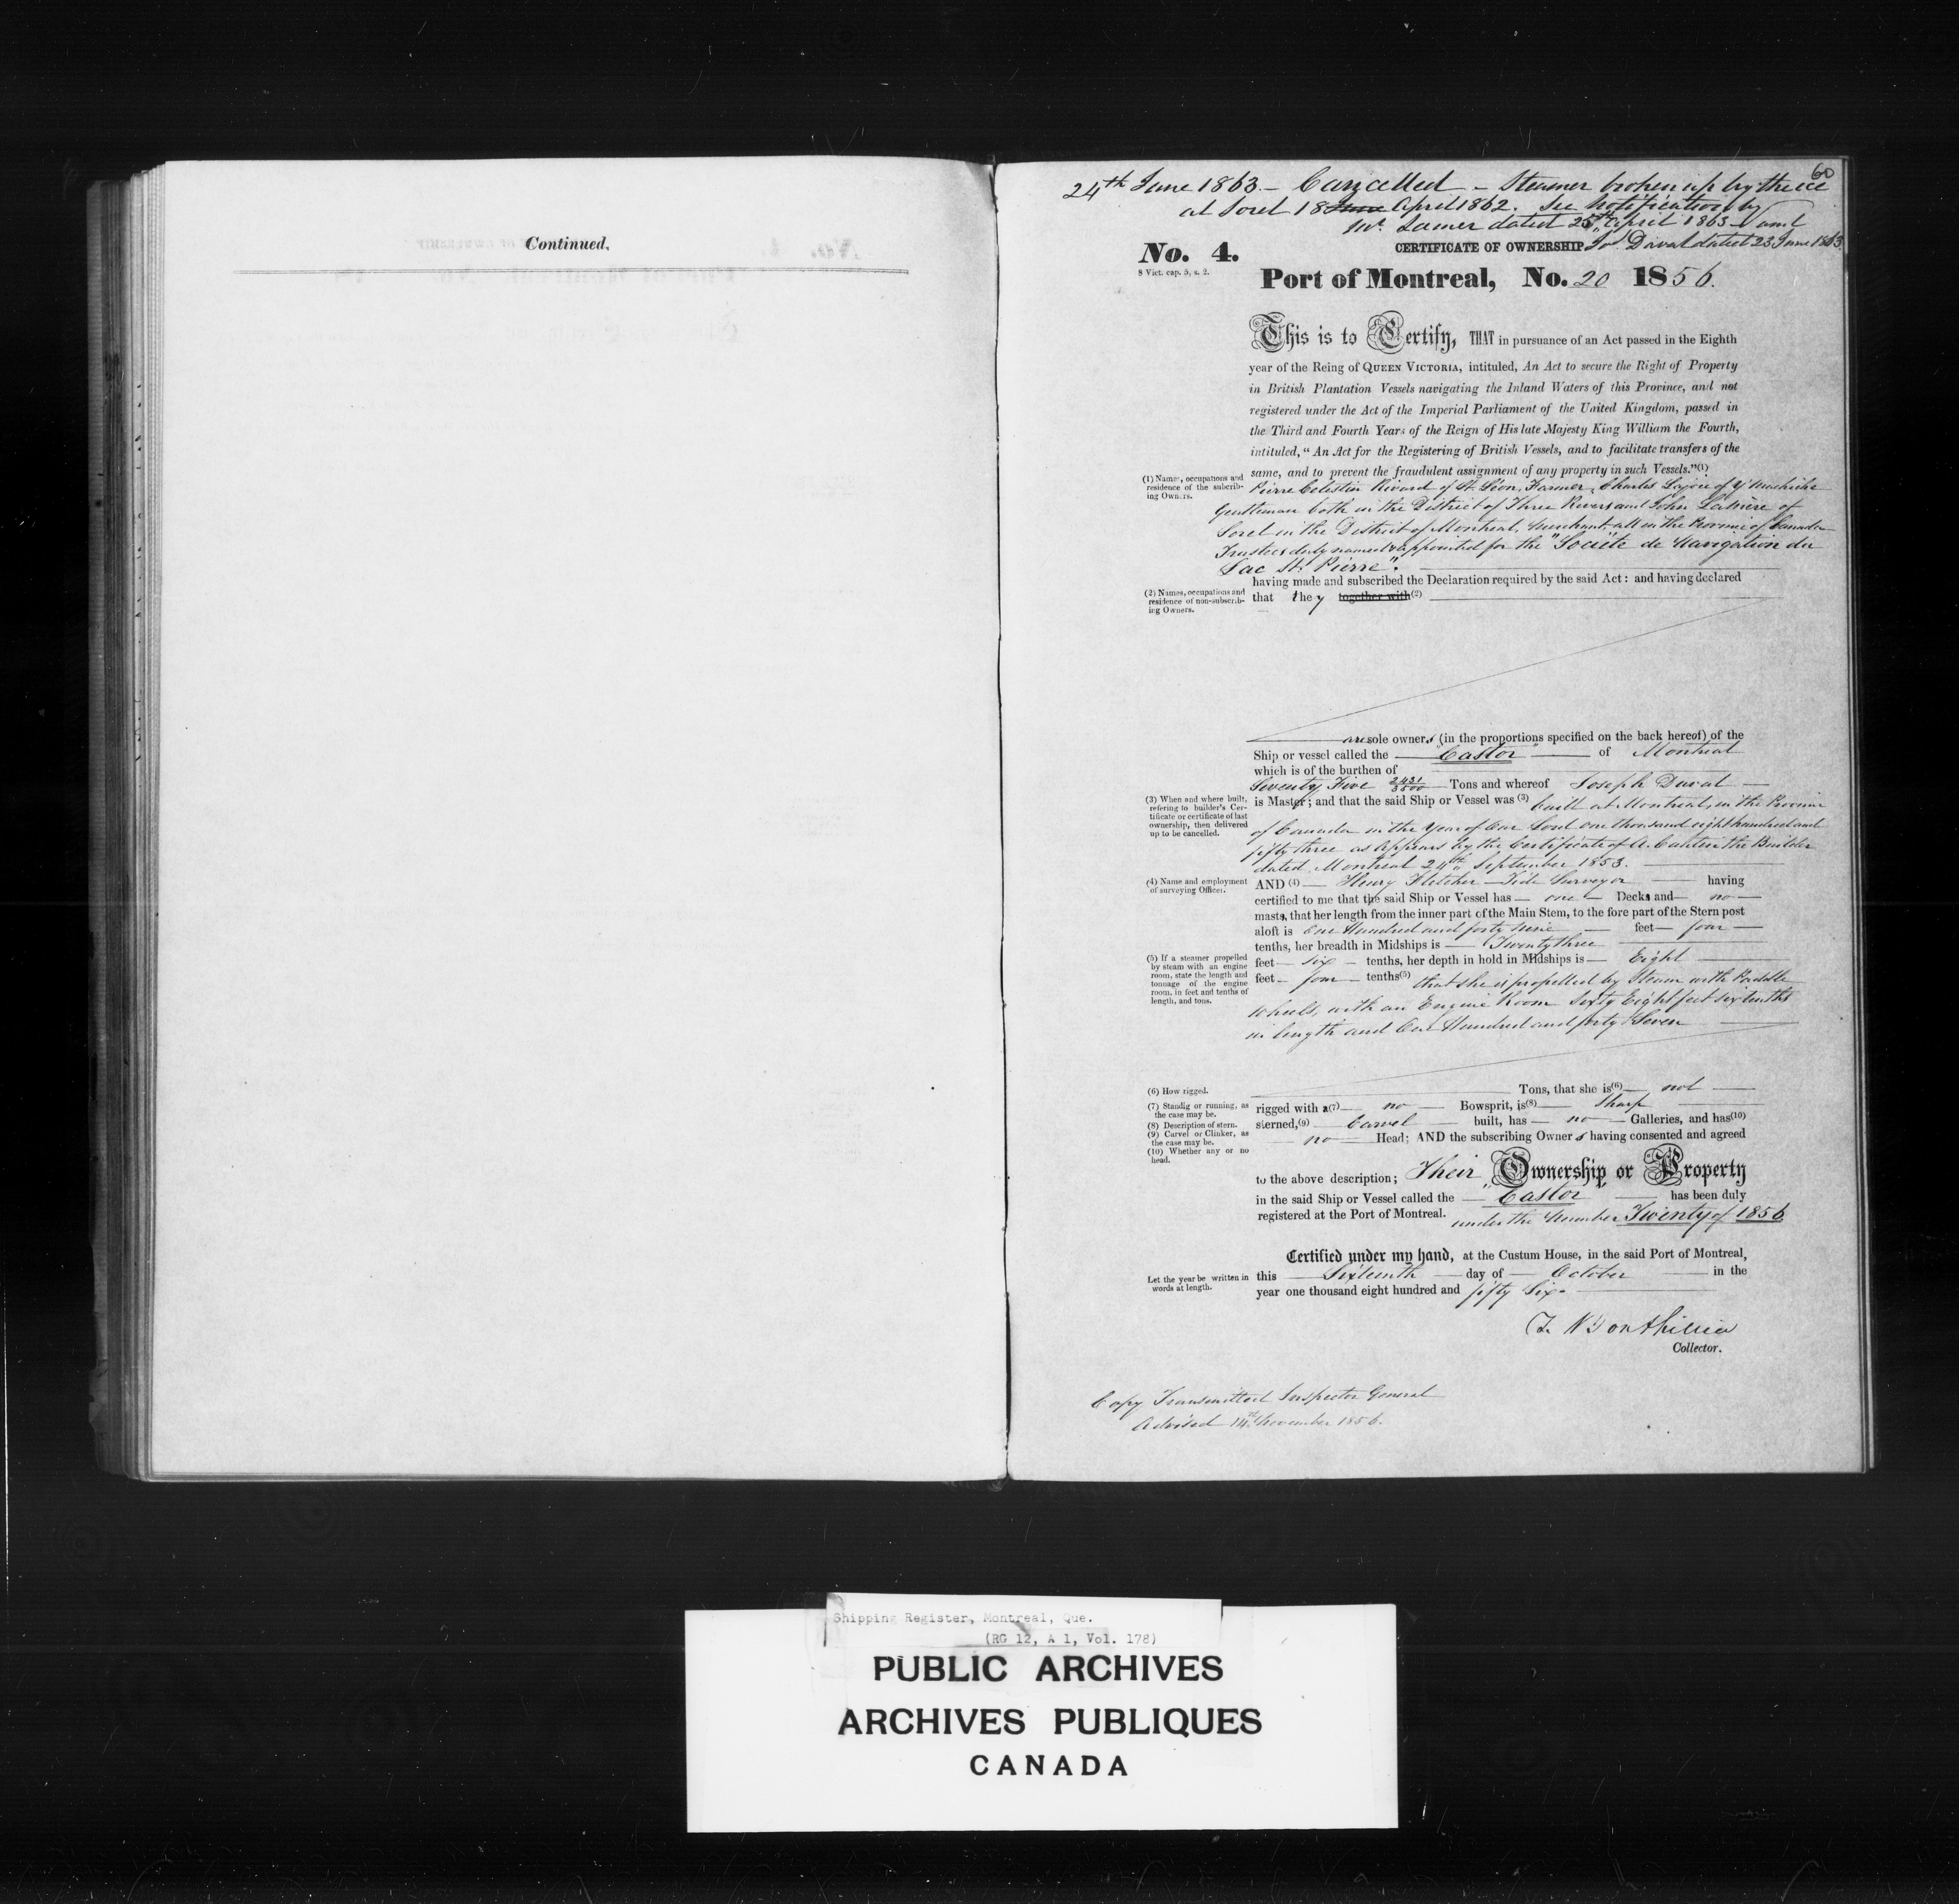 Continued,
60
24th June 1863 - Cancelled - Steamer broken up by the ice
at Sorel 18 June April 1862. See Notification by
Mr. Lamer dated 25th April 1863 and
CERTIFICATE OF OWNERSHIP Jos. Duval dated 23 June 1863
No. 4.
8 Vict. cap. 5, s. 2.
Port of Montreal, No. 20 1856.
This is to Certify, THAT in pursuance of an Act passed in the Eighth
year of the Reing of QUEEN VICTORIA, intituled, An Act to secure the Right of Property
in British Plantation Vessels navigating the Inland Waters of this Province, and not
registered under the Act of the Imperial Parliament of the United Kingdom, passed in
the Third and Fourth Years of the Reign of His late Majesty King William the Fourth,
intituled, "An Act for the Registering of British Vessels, and to facilitate transfers of the
same, and to prevent the fraudulent assignment of any property in such Vessels."(1)
(1) Names, occupations and
residence of the subcrib-
ing Owners.
Pierre Celestin Rivard of St. Léon, Farmer, Charles Lajoie of Yamachiche
Gentleman both in the District of Three Rivers and John Latrière of
Sorel in the District of Montreal, Merchant, all in the Province of Canada
Trustees duly named & appointed for the "Société de Navigation du
Lac St. Pierre".
having made and subscribed the Declaration required by the said Act: and having declared
(2) Names, occupations and
residence of non-subscrib-
ing Owners.
that they together with(2)
are sole owners (in the proportions specified on the back hereof) of the
Ship or vessel called the "Castor" of Montreal
which is of the burthen of
Seventy Five 2431/3500 Tons and whereof Joseph Duval
(3) When and where built,
refering to builder's Cer-
tificate or certificate of last
ownership, then delivered
up to be cancelled.
is Master; and that the said Ship or Vessel was (3) built at Montreal, in the Province
of Canada in the Year of Our Lord one thousand eight hundred and
fifty three as Appears by the Certificate of A. Cantin the Builder
dated Montreal 24th September 1853.
(4) Name and employment
of surveying Officer.
AND (4) Henry Fletcher Tide Surveyor having
certified to me that the said Ship or Vessel has one Decks and no
masts, that her length from the inner part of the Main Stem, to the fore part of the Stern post
aloft is One Hundred and forty nine feet four
tenths, her breadth in Midships is Twenty three
(5) If a steamer propelled
by steam with an engine
room, state the length and
tonnage of the engine
room, in feet and tenths of
length, and tons.
feet six tenths, her depth in hold in Midships is Eight
feet four tenths(5) that she is propelled by Steam with Paddle
wheels, with an Engine Room Sixty Eight feet six tenths
in length and One Hundred and forty Seven
(6) How rigged.
Tons, that she is(6) not
(7) Standig or running, as
the case may be.
(8) Description of stern.
(9) Carvel or Clinker, as
the case may be.
(10) Whether any or no
head.
rigged with a(7) no Bowsprit, is(8) Sharp
sterned,(9) Carvel built, has no Galleries, and has(10)
no Head; AND the subscribing Owners having consented and agreed
to the above description; Their Ownership or Property
in the said Ship or Vessel called the "Castor" has been duly
registered at the Port of Montreal. under the Number Twenty of 1856
Certified under my hand, at the Custum House, in the said Port of Montreal,
Let the year be written in
words at length.
this Sixteenth day of October in the
year one thousand eight hundred and fifty Six.
Collector.
Copy Transmitted Inspector General
Advised 14th November 1856.
Shipping Register, Montreal, Que.
(RG 12, A 1, Vol. 178)
PUBLIC ARCHIVES
ARCHIVES PUBLIQUES
CANADA